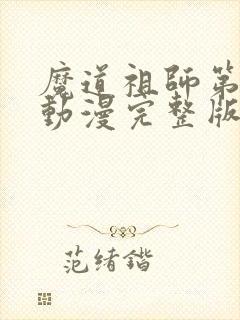 魔道祖師第
動漫完整版
范绪锴